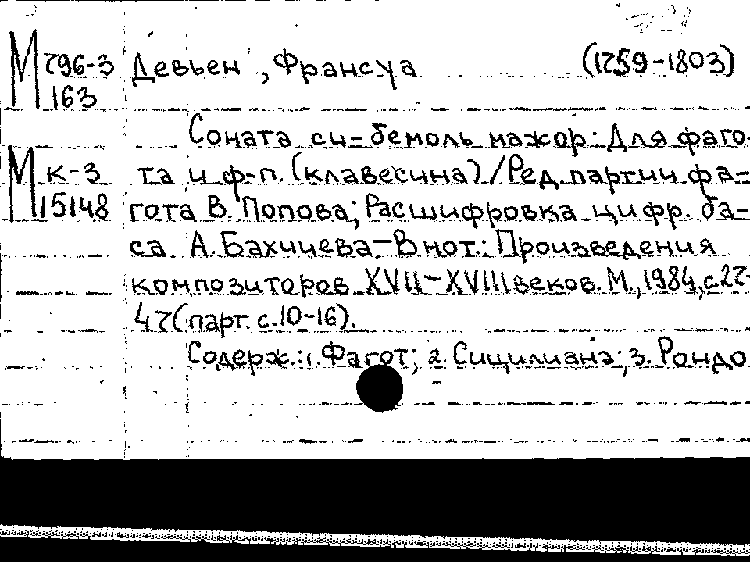 М 796-3 Девьен, Франсуа (1759-1803)
163
Соната си-бемоль мажор: Для фаго-
М к-3 та и ф-п. (клавесина) / Ред. партии фа-
15148 гота В. Попова; Расшифровка цифр. ба-
са А. Бахчиева - В нот.: Произведения
композиторов XVII-XVIII веков. М., 1984, с. 27-
47 (парт. с. 10-16).
Содерж.: 1. Фагот; 2. Сицилиана; 3. Рондо